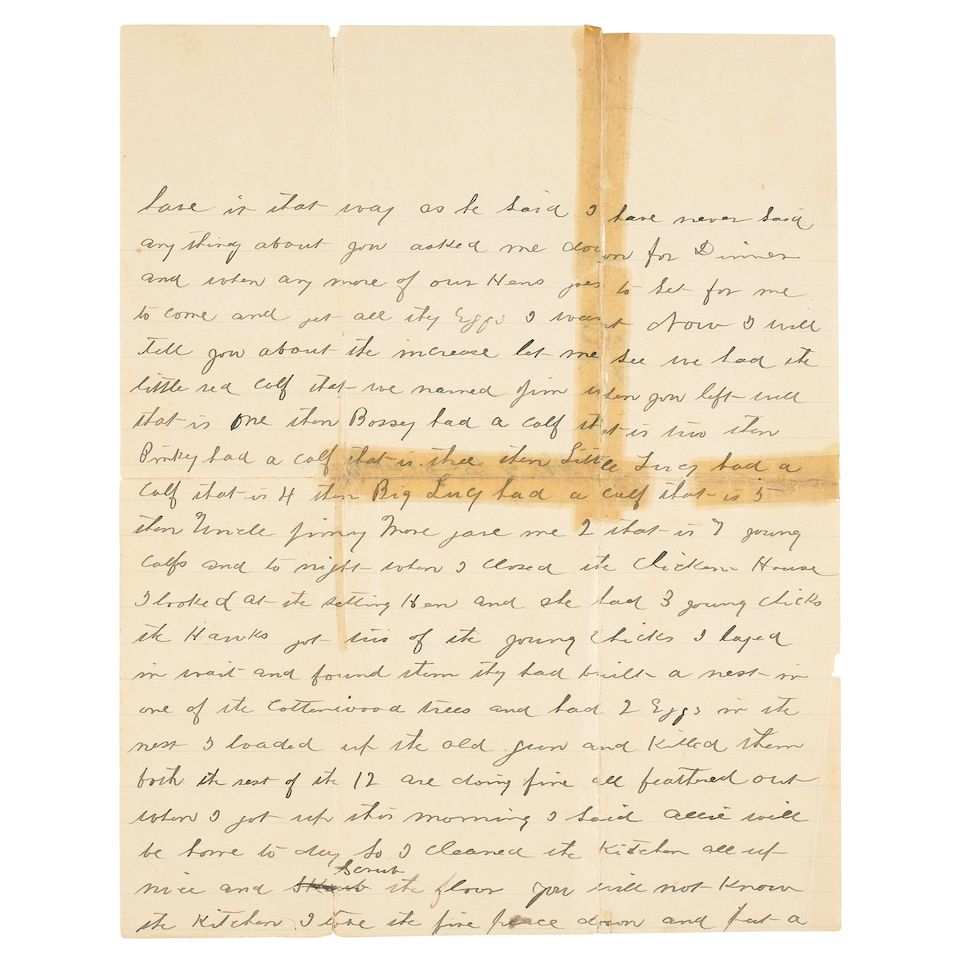 have it that way as he said I have never said
any thing about you asked me down for Dinner
and when any more of our Hens goes to Set for me
to come and get all the Eggs I want Now I will
tell you about the increase let me see we had the
little red calf that we named Jim when you left well
that is one then Bossey had a calf that is two then
Pinkey had a calf that is three then Little Lucy had a
calf that is 4 then Big Lucy had a calf that is 5
then Uncle Jimmy More gave me 2 that is 7 young
calfs and to night when I closed the Chicken House
I looked at the setting Hen and she had 3 young chicks
the Hawks got two of the young chicks I layed
in wait and found them they had built a nest in
one of the Cottenwood trees and had 2 Eggs in the
nest I loaded up the old gun and Killed them
both the rest of the 12 are doing fine all feathered out
when I got up this morning I said Allie will
be home to day So I cleaned the Kitchen all up
nice and Scrub the floor you will not Know
the Kitchen I tore the fire place down and put a